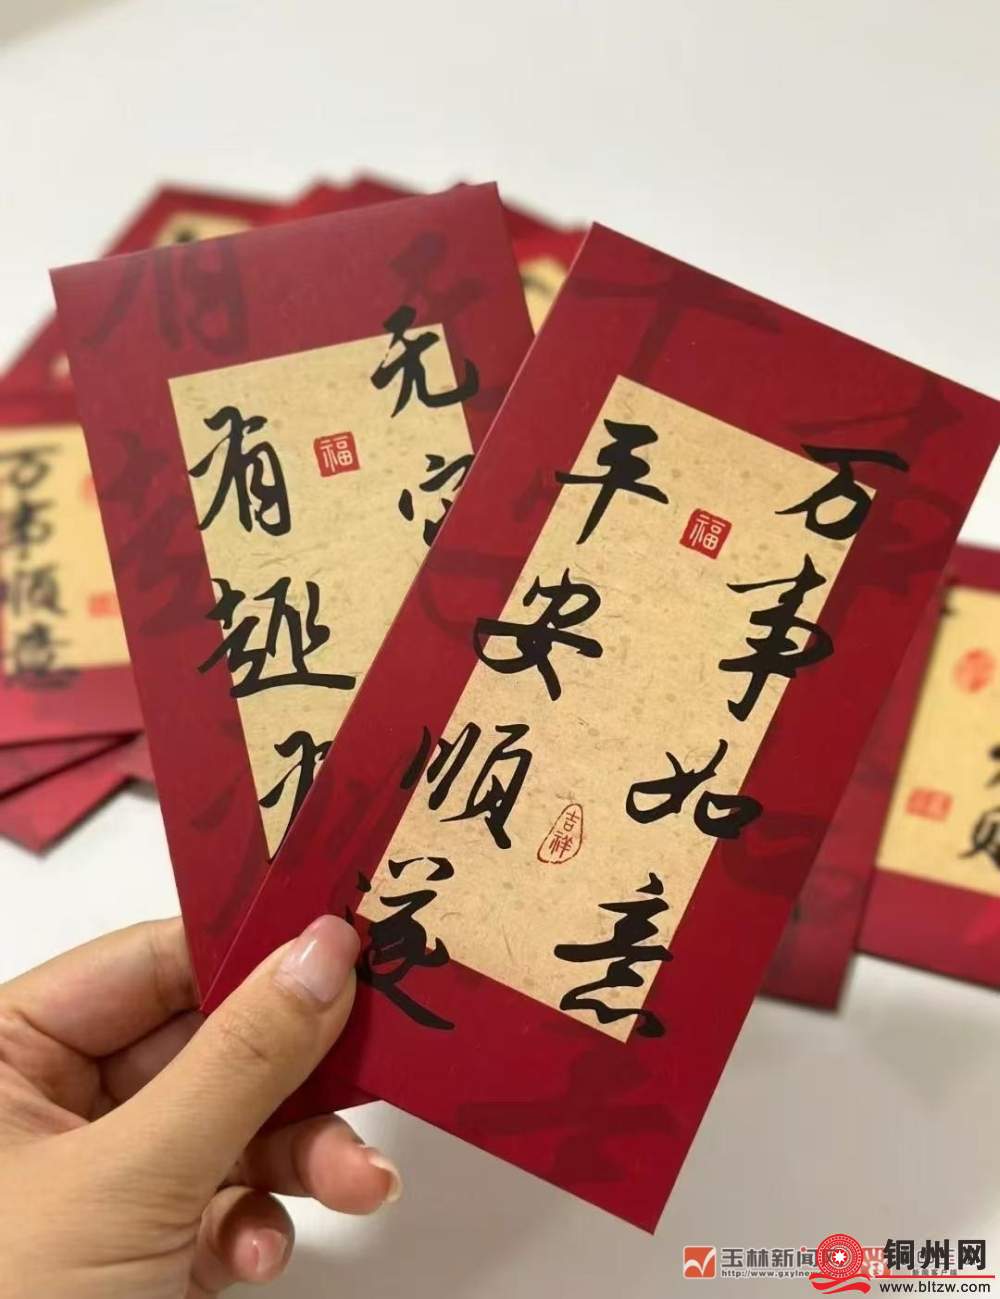 万事如意
平安顺遂
福
吉祥
无
有趣
福
万事顺意
玉林新闻网
http://www.gxylne
铜州网
www.bltzw.com